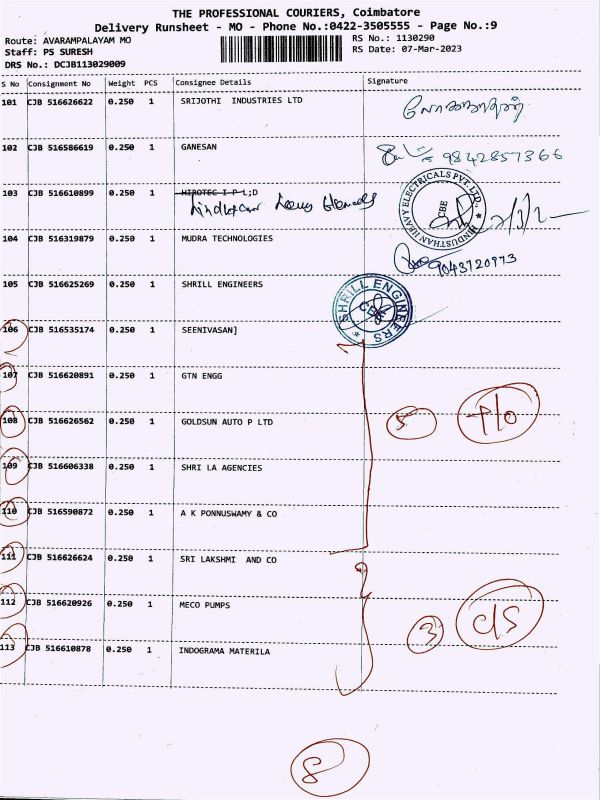 THE PROFESSIONAL COURIERS, Coimbatore
Delivery Runsheet - MO - Phone No.:0422-3505555 - Page No.:9
Route: AVARAMPALAYAM MO
RS No.: 1130290
Staff: PS SURESH
RS Date: 07-Mar-2023
DRS No.: DCJB113029009
S No Consignment No Weight PCS Consignee Details Signature
101 CJB 516626622 0.250 1 SRIJOTHI INDUSTRIES LTD
102 CJB 516586619 0.250 1 GANESAN 9842857366
103 CJB 516610899 0.250 1 HIROTEC I P L;D
HINDUSTHAN HEAVY ELECTRICALS PVT. LTD., CBE
104 CJB 516319879 0.250 1 MUDRA TECHNOLOGIES 9043720973
105 CJB 516625269 0.250 1 SHRILL ENGINEERS
SHRILL ENGINEERS CBE
106 CJB 516535174 0.250 1 SEENIVASAN]
107 CJB 516620891 0.250 1 GTN ENGG
108 CJB 516626562 0.250 1 GOLDSUN AUTO P LTD 5 P/O
109 CJB 516606338 0.250 1 SHRI LA AGENCIES
110 CJB 516590872 0.250 1 A K PONNUSWAMY & CO
111 CJB 516626624 0.250 1 SRI LAKSHMI AND CO
112 CJB 516620926 0.250 1 MECO PUMPS 3 C/S
113 CJB 516610878 0.250 1 INDOGRAMA MATERILA
8